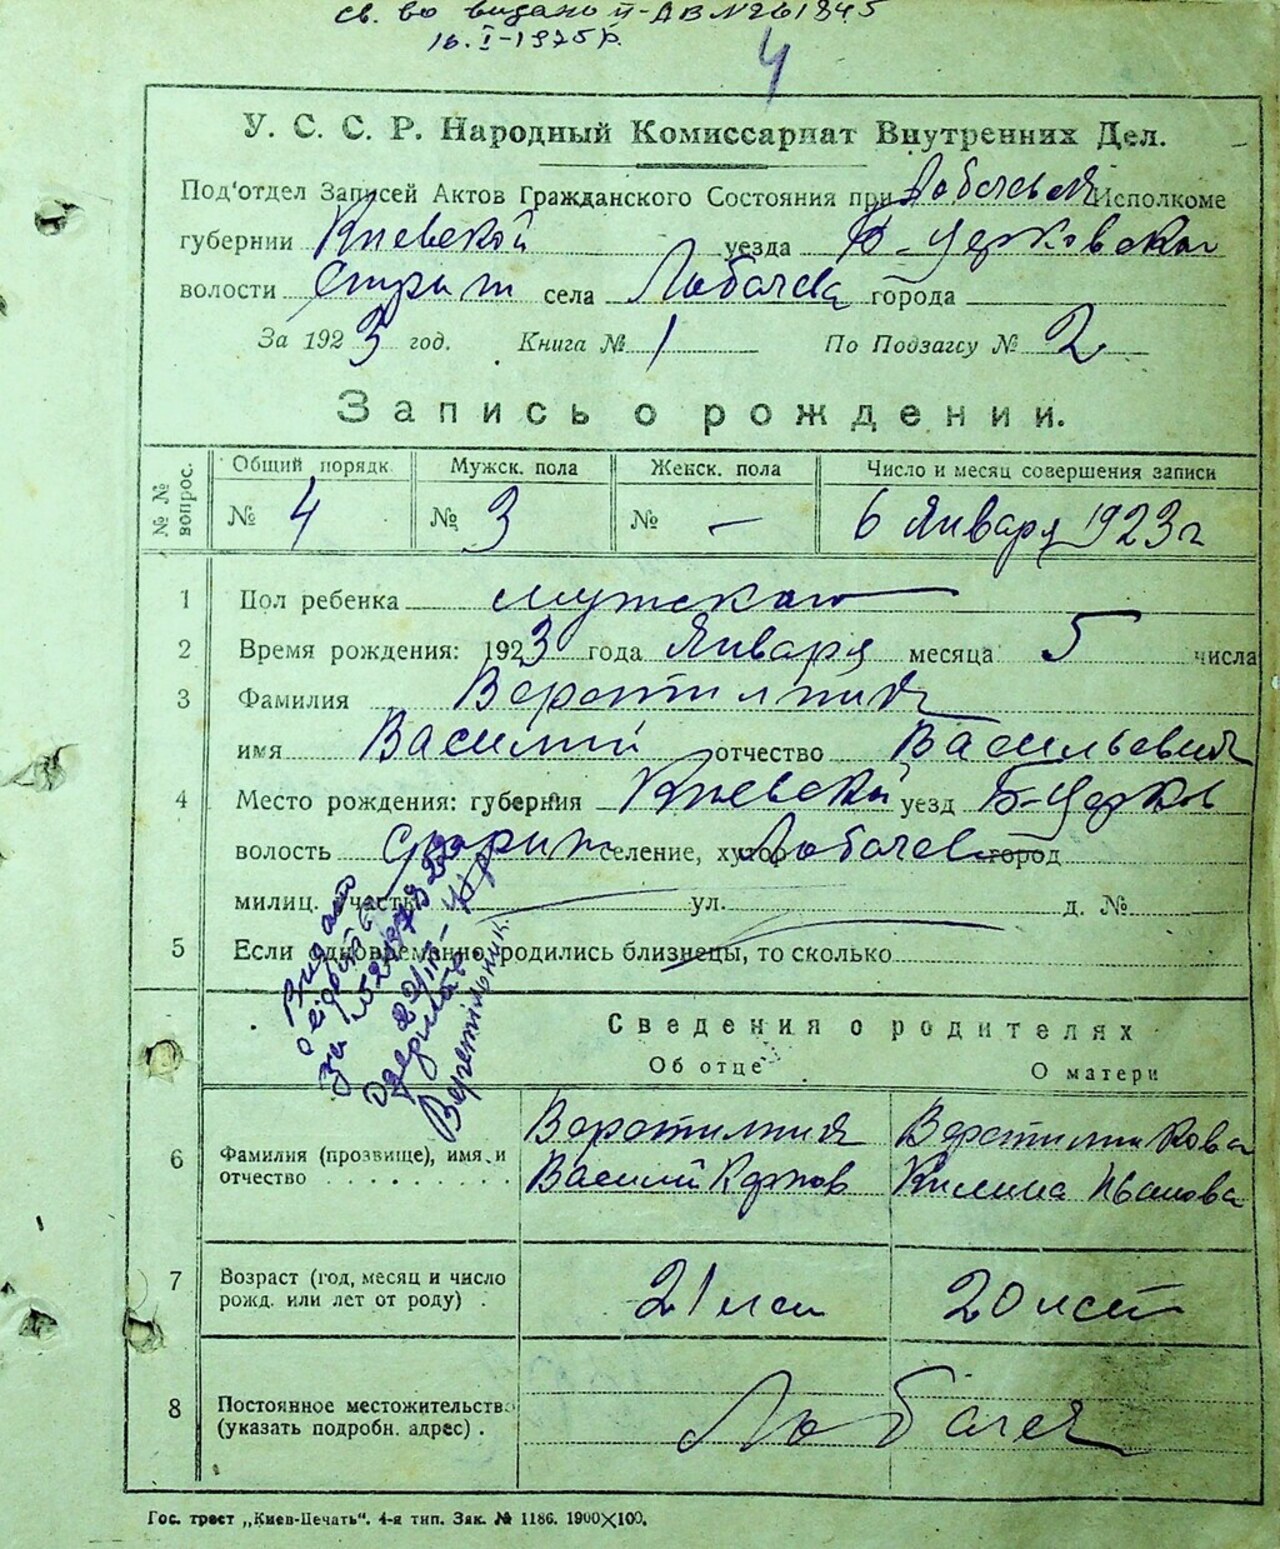 св. во видано ІІ-АВ №261845
16.I-1975р.
4
У. С. С. Р. Народный Комиссариат Внутренних Дел.
Под'отдел Записей Актов Гражданского Состояния при Исполкоме
губернии Киевской уезда Б-Церковской
волости села Лобачева города
За 1923 год. Книга № 1 По Подзагсу № 2
Запись о рождении.
№ № вопрос. Общий порядк. Мужск. пола Женск. пола Число и месяц совершения записи
№ 4 № 3 № — 6 Января 1923г
1 Пол ребенка мужской
2 Время рождения: 1923 года Января месяца 5 числа
3 Фамилия
имя Василий отчество Васильевич
4 Место рождения: губерния Киевской уезд Б-Церков
волость селение, хутор Лобачев город
милиц. часть ул. д. №
5 Если одновременно родились близнецы, то сколько
Видано
за
22/III-
Сведения о родителях
Об отце О матери
6 Фамилия (прозвище), имя и отчество
Василий Карпов Килина Иванова
7 Возраст (год, месяц и число рожд. или лет от роду) . 21 20 лет
8 Постоянное местожительство (указать подробн. адрес) . Лобачев
Гос. трест „Киев-Печать". 4-я тип. Зак. № 1186. 1900×100.